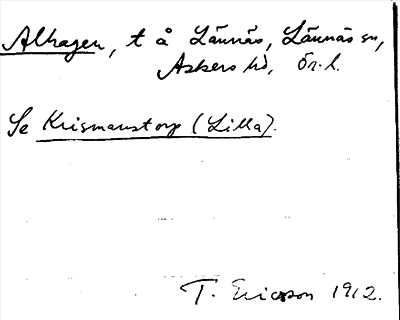 Alhagen, t å Lännäs, Lännäs sn,
Askers hd, Ör. l.
Se Krismanstorp (Lilla).
T. Ericsson 1912.